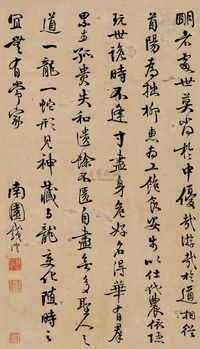 明者處世莫尚於中優哉游哉於道相從
首陽為拙柳惠為工飽食安步以仕代農依隱
玩世詭時不逢才盡身危好名得華有群
累生孤貴失和遺餘不匱自盡無多聖人之
道一龍一蛇形見神藏與龍變化隨時之
宜無有常家
南園錢灃